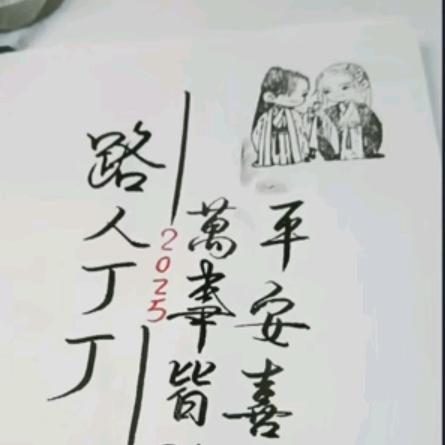 平安喜
萬事皆
2025
路人丁丁